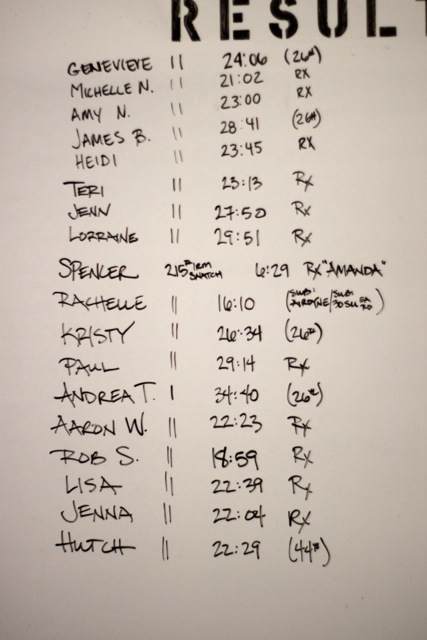 RESULT
GENEVIEVE 11 24:06 (26#)
MICHELLE N. 11 21:02 RX
AMY N. 11 23:00 RX
JAMES B. 11 28:41 (26#)
HEIDI 11 23:45 RX
TERI 11 23:13 RX
JENN 11 27:50 RX
LORRAINE 11 29:51 RX
SPENCER 215# 1RM SNATCH 6:29 RX "AMANDA"
RACHELLE 11 16:10 (SUB: /SUB: )
KRISTY 11 26:34 (26#)
PAUL 11 29:14 RX
ANDREA T. 1 34:40 (26#)
AARON W. 11 22:23 RX
ROB S. 11 18:59 RX
LISA 11 22:39 RX
JENNA 11 22:04 RX
HUTCH 11 22:29 (44#)